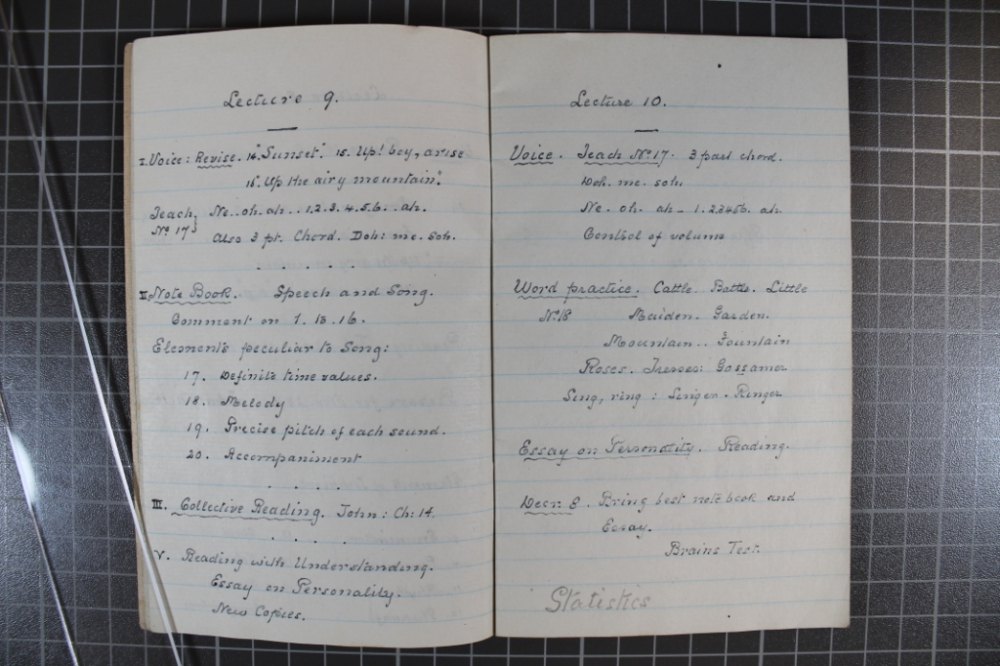 Lecture 9.
I. Voice: Revise. 14. "Sunset". 15. Up! boy, arise
16. Up the airy mountain".
Teach, Ne..oh.ah..1.2.3.4.5.6..ah.
No 17
Also 3 pt. Chord. Doh: me. soh.
. . . . .
II. Note Book. Speech and Song.
Comment on 1. 13. 16.
Elements peculiar to Song:
17. Definite time values.
18. Melody
19. Precise pitch of each sound.
20. Accompaniment
. . .
III. Collective Reading. John: Ch: 14.
. . . .
V. Reading with Understanding.
Essay on Personality.
New Copies.
Lecture 10.
Voice. Teach No 17. 3 part chord.
Doh. me. soh.
Ne. oh. ah - 1.23456. ah.
Control of volume
Word practice. Cattle. Battle. Little
No 18 Maiden. Garden.
Mountain.. Fountain
Roses. Gossamer
Sing, ring: Singer. Ringer
Essay on Personality. Reading.
Decr. 8. Bring best note book and
Essay.
Brains Test.
Statistics